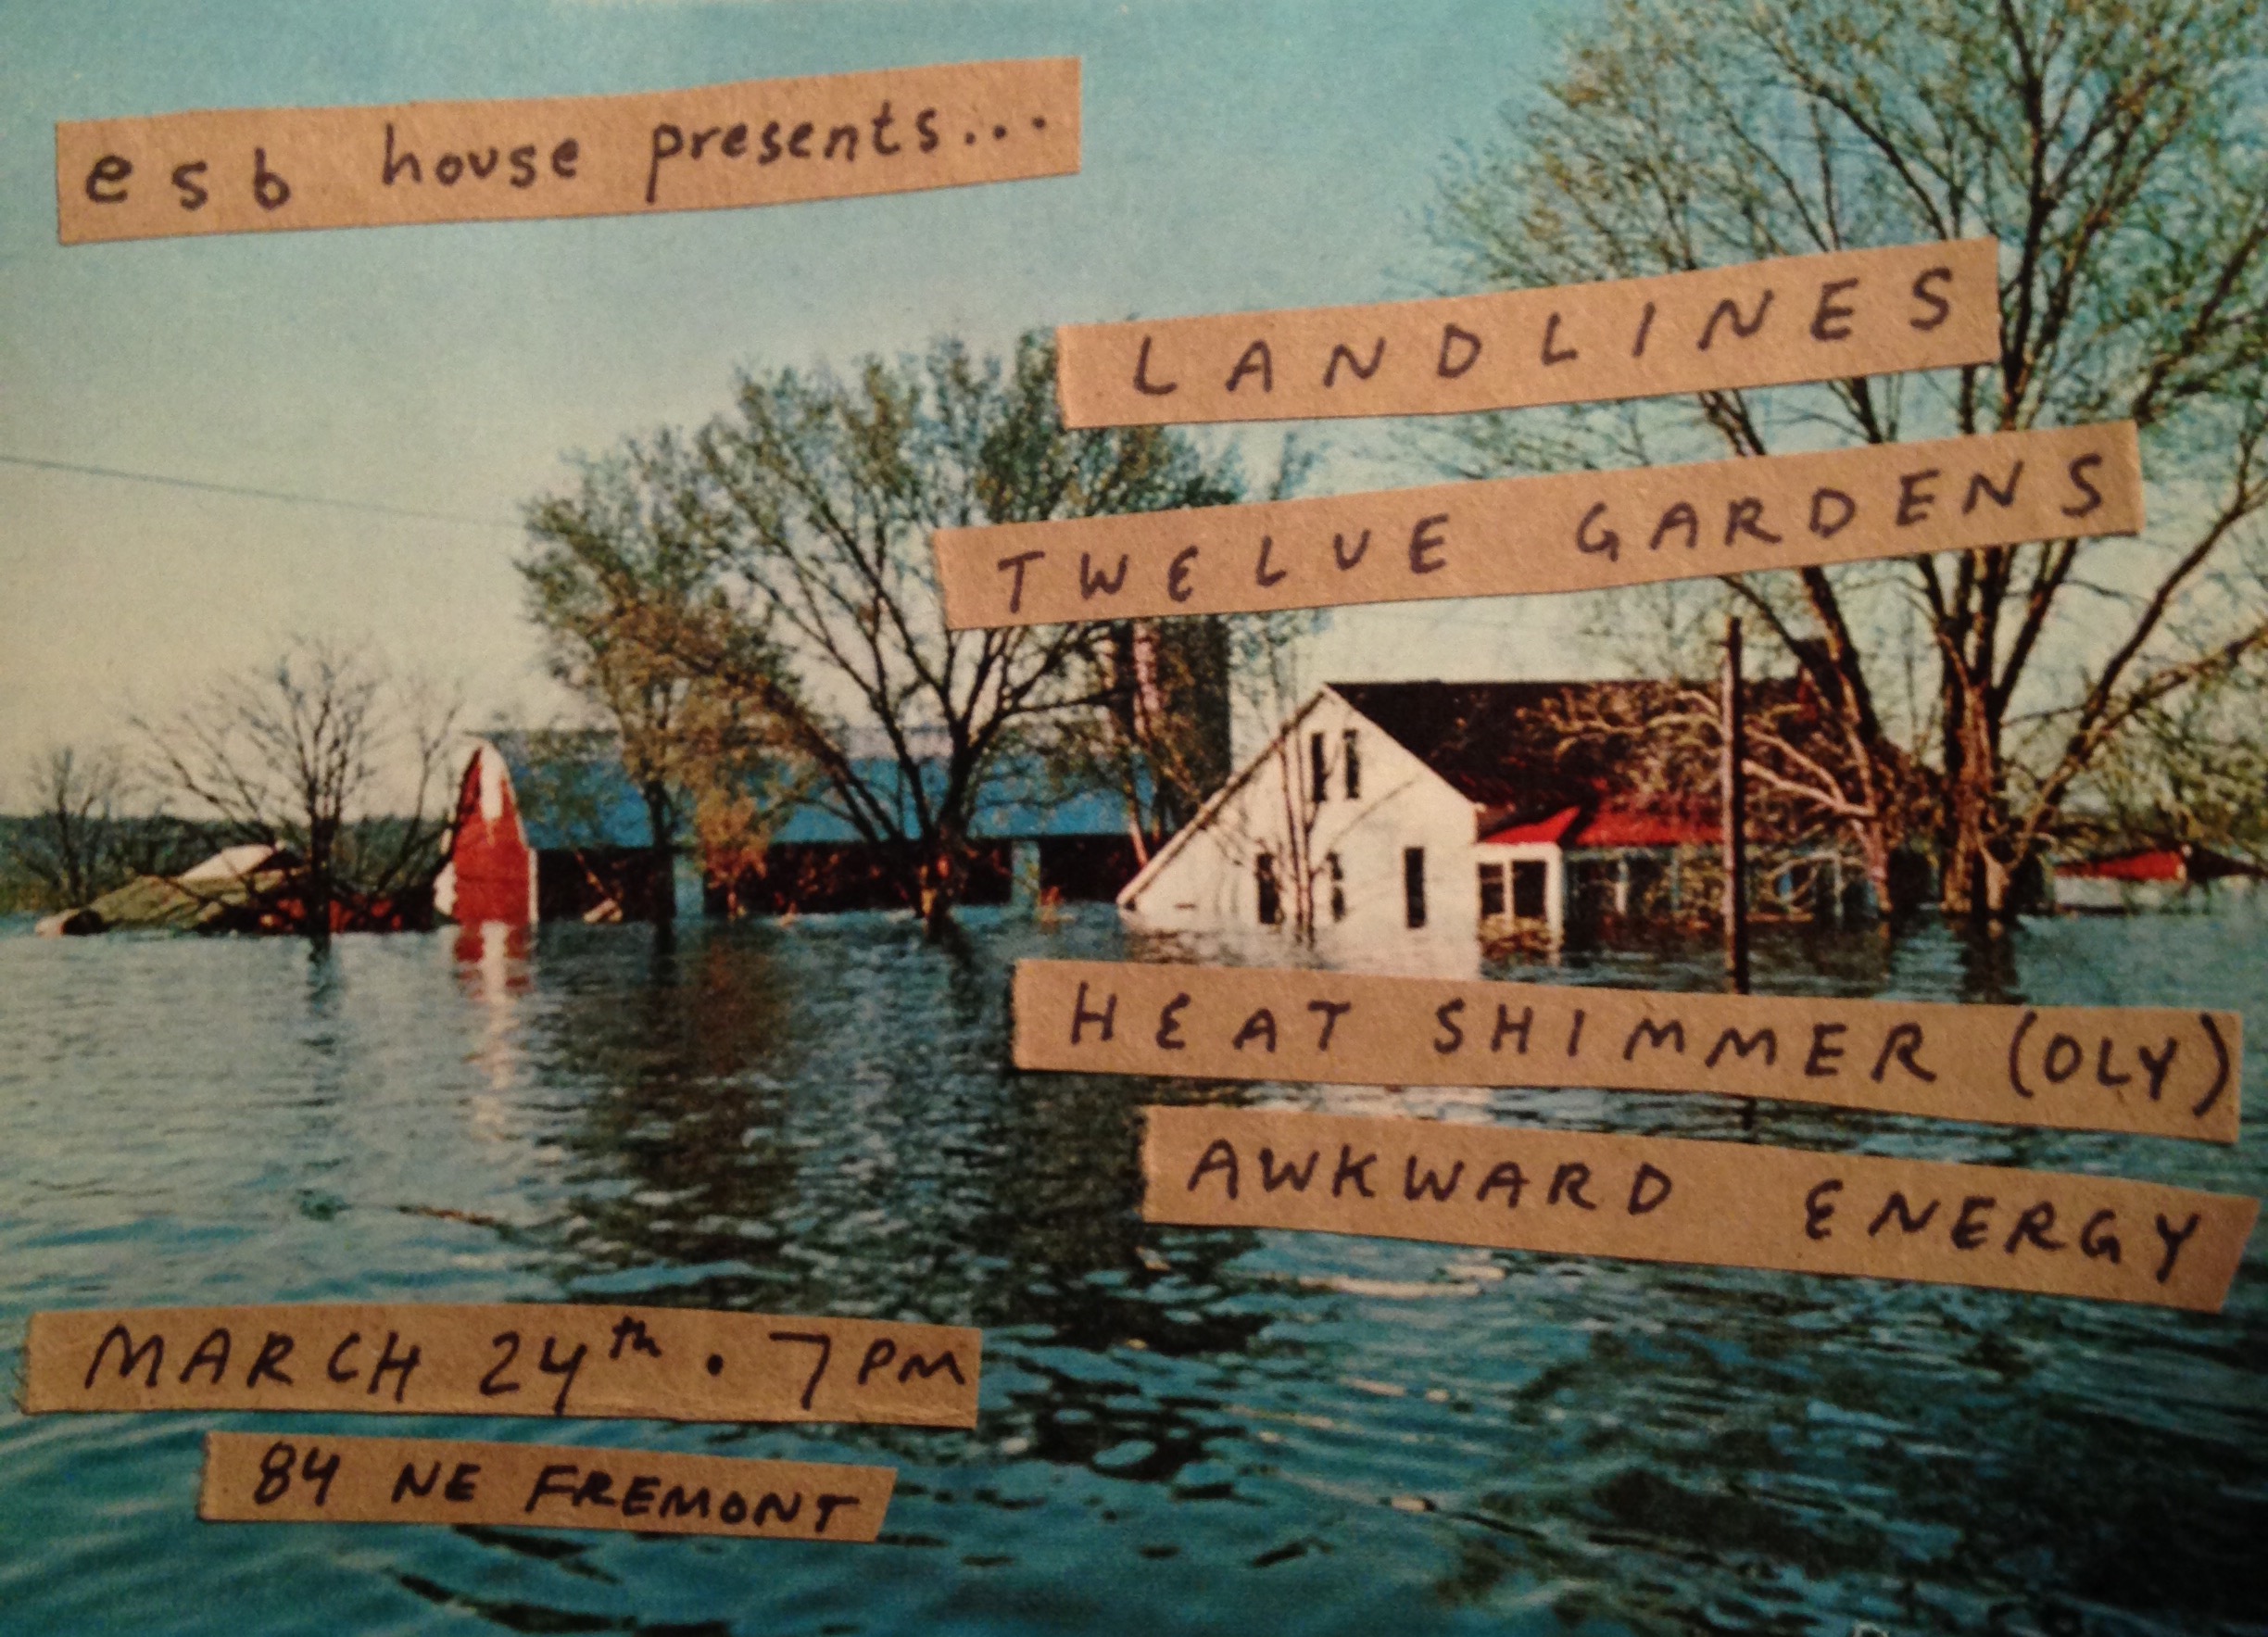 esb house presents...
LANDLINES
TWELVE GARDENS
HEAT SHIMMER (OLY)
AWKWARD ENERGY
MARCH 24th • 7PM
84 NE FREMONT